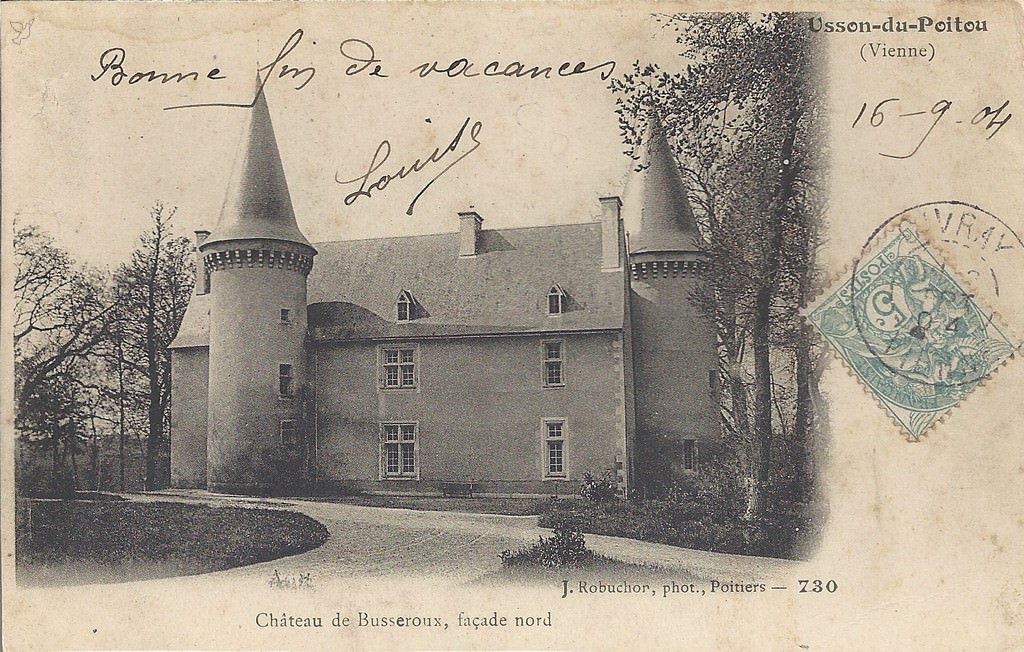 Usson-du-Poitou
(Vienne)
Bonne fin de vacances
16-9-04
Louise
IVRAY
04
POSTES
5
J. Robuchon, phot., Poitiers — 730
Château de Busseroux, façade nord